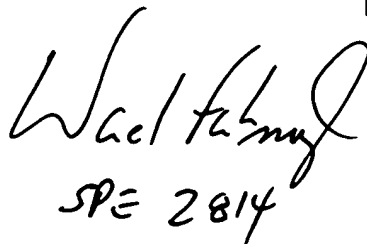 Wael Fahmy
SPE 2814